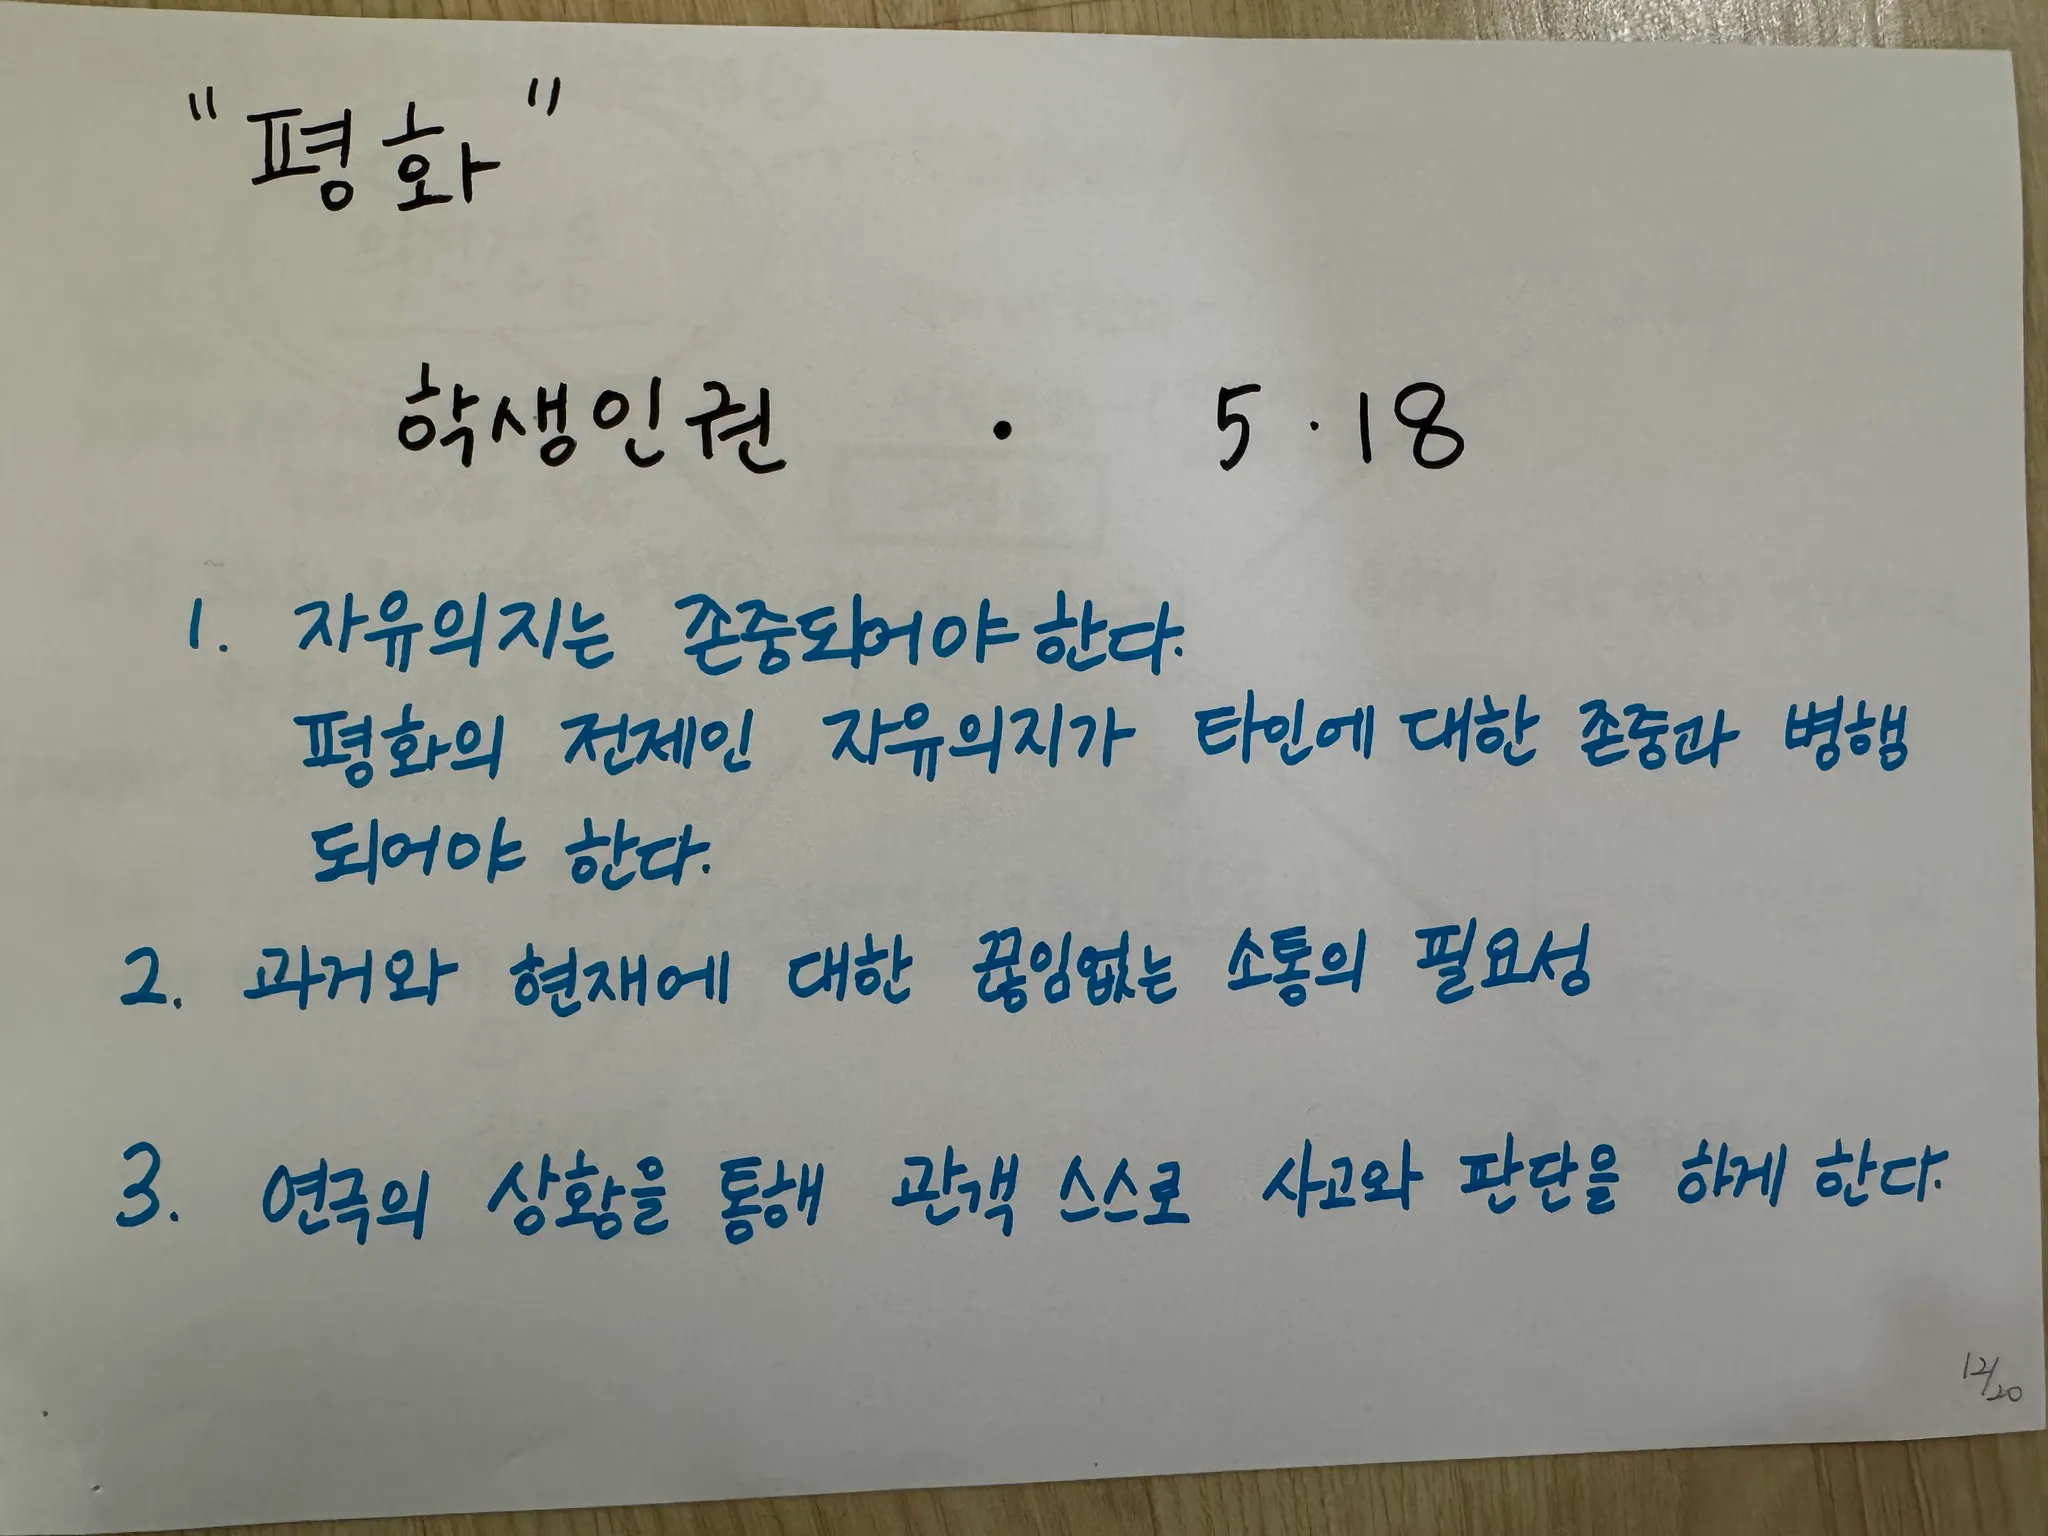 "평화"
학생인권 · 5·18
1. 자유의지는 존중되어야 한다.
평화의 전제인 자유의지가 타인에 대한 존중과 병행
되어야 한다.
2. 과거와 현재에 대한 끊임없는 소통의 필요성
3. 연극의 상황을 통해 관객 스스로 사고와 판단을 하게 한다.
12/20